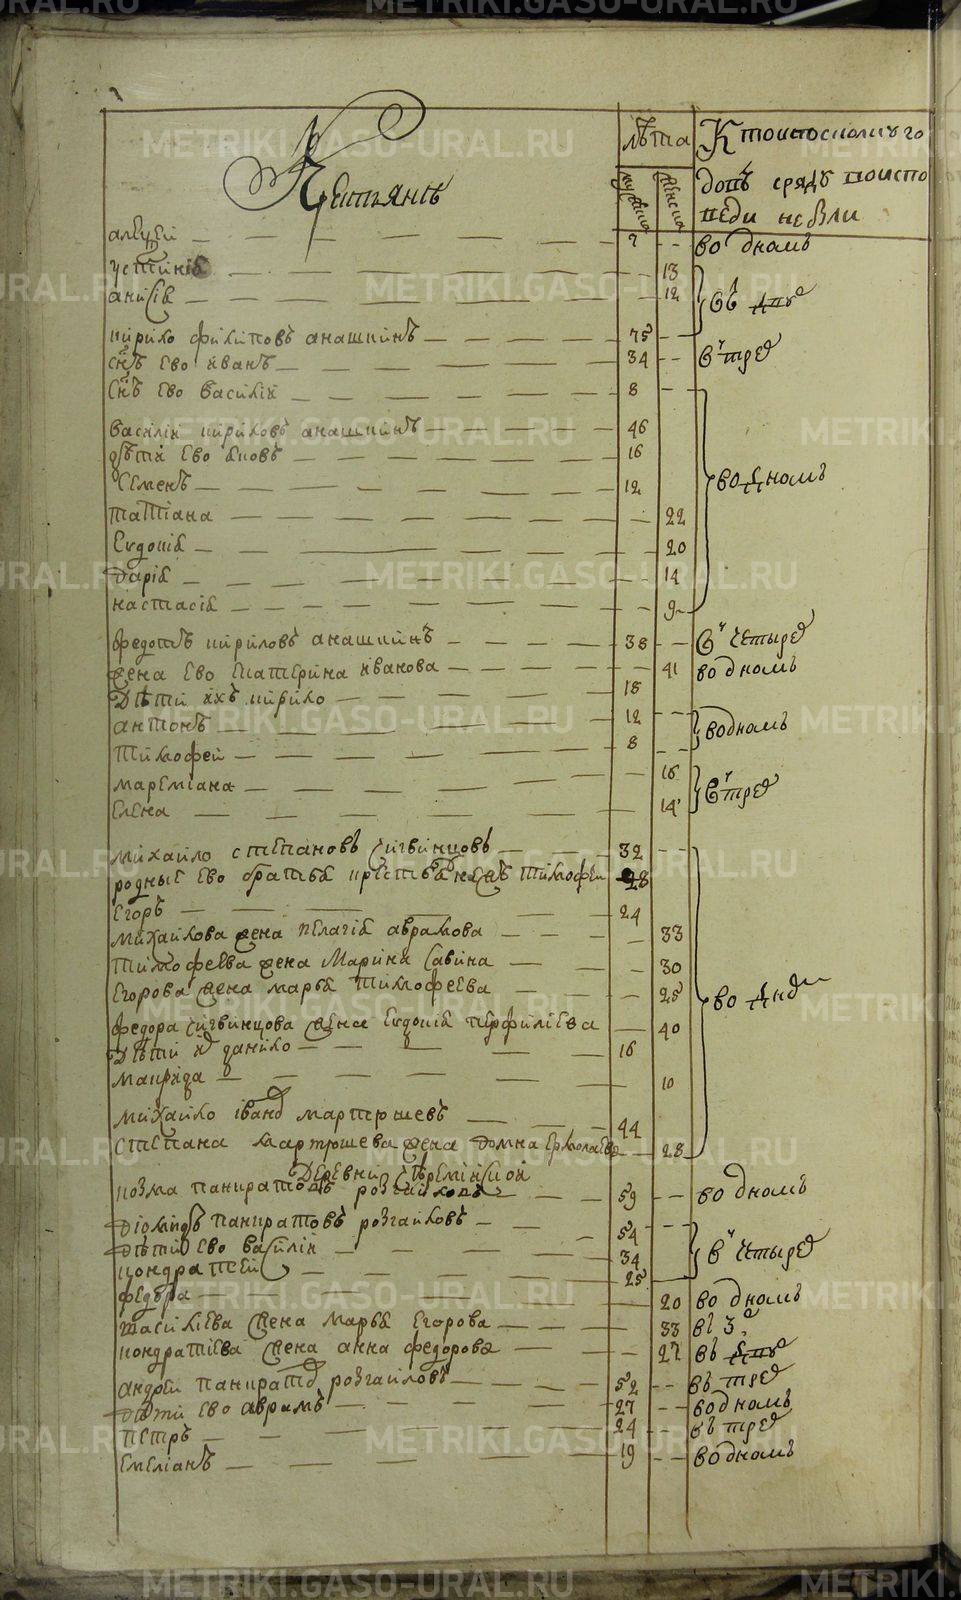 METRIKI.GASO-URAL.RU
Крестьянъ
лѣта
мужеска
женска
Кто исповѣ
не были
алеѯей 7 во дномъ
устиніѧ 13
анисіѧ 12
кирило филиповъ анашкинъ 75
снъ ево иванъ 34 в трех
снъ ево василій 8
василій кириловъ анашкинъ 46
дѣти ево іяковъ 16
семенъ 12 во дномъ
татіана 22
евдокіѧ 20
даріѧ 14
настасіѧ 9
федотъ кириловъ анашкинъ 38 в четырех
жена ево екатерина иванова 41 во дномъ
дѣти ихъ кирило 18
антонъ 12 водномъ
тимофей 8
мареміана 16 в трех
елена 14
михайло степановъ сигвинцовъ 32
родные ево братьѧ тимофей 28
егоръ 24
михайлова жена пелагіѧ аврамова 33
тимофеева жена марина савина 30
егорова жена марѳа тимофеева 25
федора сигвинцова жена евдокіѧ перфиліева 40
дѣти их данило 16
макрида 10
михайло іванов мартюшевъ 44
степана мартюшева жена домна ермолаева 28
деревни
козма панкратовъ розгайловъ 59 во дномъ
діомидъ панкратовъ розгайловъ 54
дѣти ево василій 34 в четырех
кондратей 25
федора 20 во дномъ
василіева жена марѳа егорова 33 въ 3
кондратіева жена анна федорова 27 въ двух
андрей панкратов розгайловъ 52 въ трех
дѣти ево аврамъ 27 водномъ
петръ 24 въ трех
емеліанъ 19 водномъ